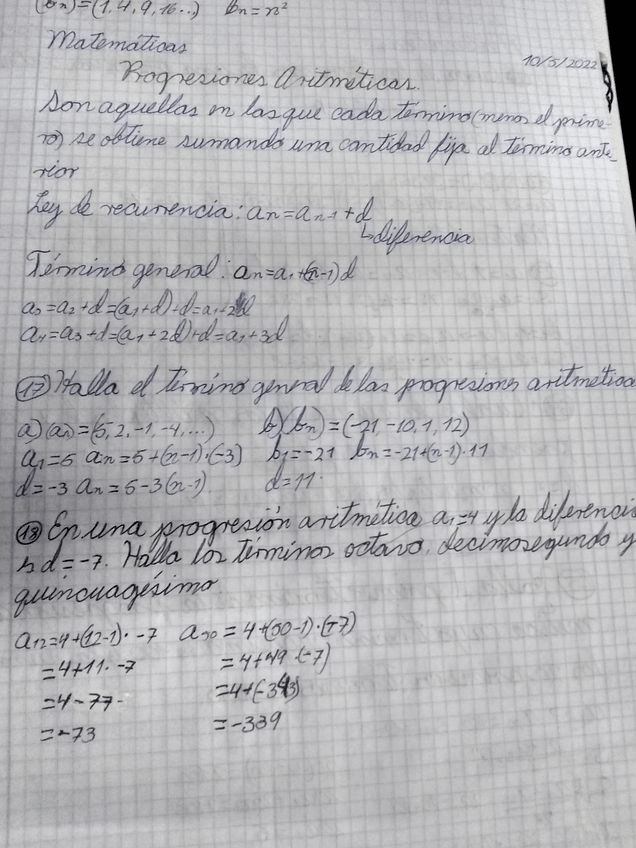 (bn)=(1,4,9,16...) bn=n²
Matemáticas
10/5/2022
Progresiones Aritméticas.
Son aquellas en las que cada término (menos el prime-
ro) se obtiene sumando una cantidad fija al término ante-
rior
Ley de recurrencia: an=an-1+d
↳diferencia
Término general: an=a1+(n-1)d
a3=a2+d=(a1+d)+d=a1+2d
a4=a3+d=(a1+2d)+d=a1+3d
17) Halla el término general de las progresiones aritmética
a) (an)=(5,2,-1,-4,...) b) (bn)=(-21,-10,1,12)
a1=5 an=5+(n-1)·(-3) b1=-21 bn=-21+(n-1)·11
d=-3 an=5-3(n-1) d=11
18) En una progresión aritmética a1=4 y la diferencia
es d=-7. Halla los términos octavo, decimosegundo y
quincuagésimo.
a12=4+(12-1)·-7 a50=4+(50-1)·(-7)
=4+11·-7 =4+49·(-7)
=4-77 =4+(-343)
=-73 =-339